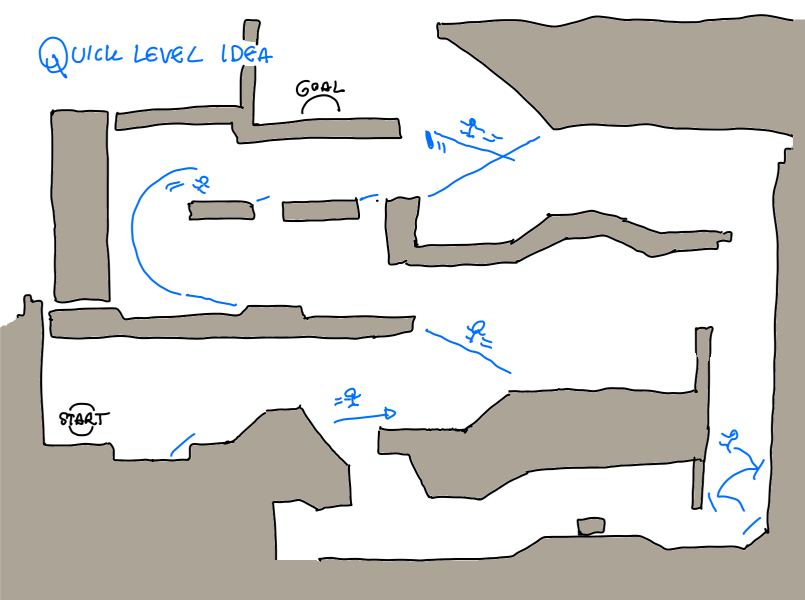 QUICK LEVEL IDEA
GOAL
START